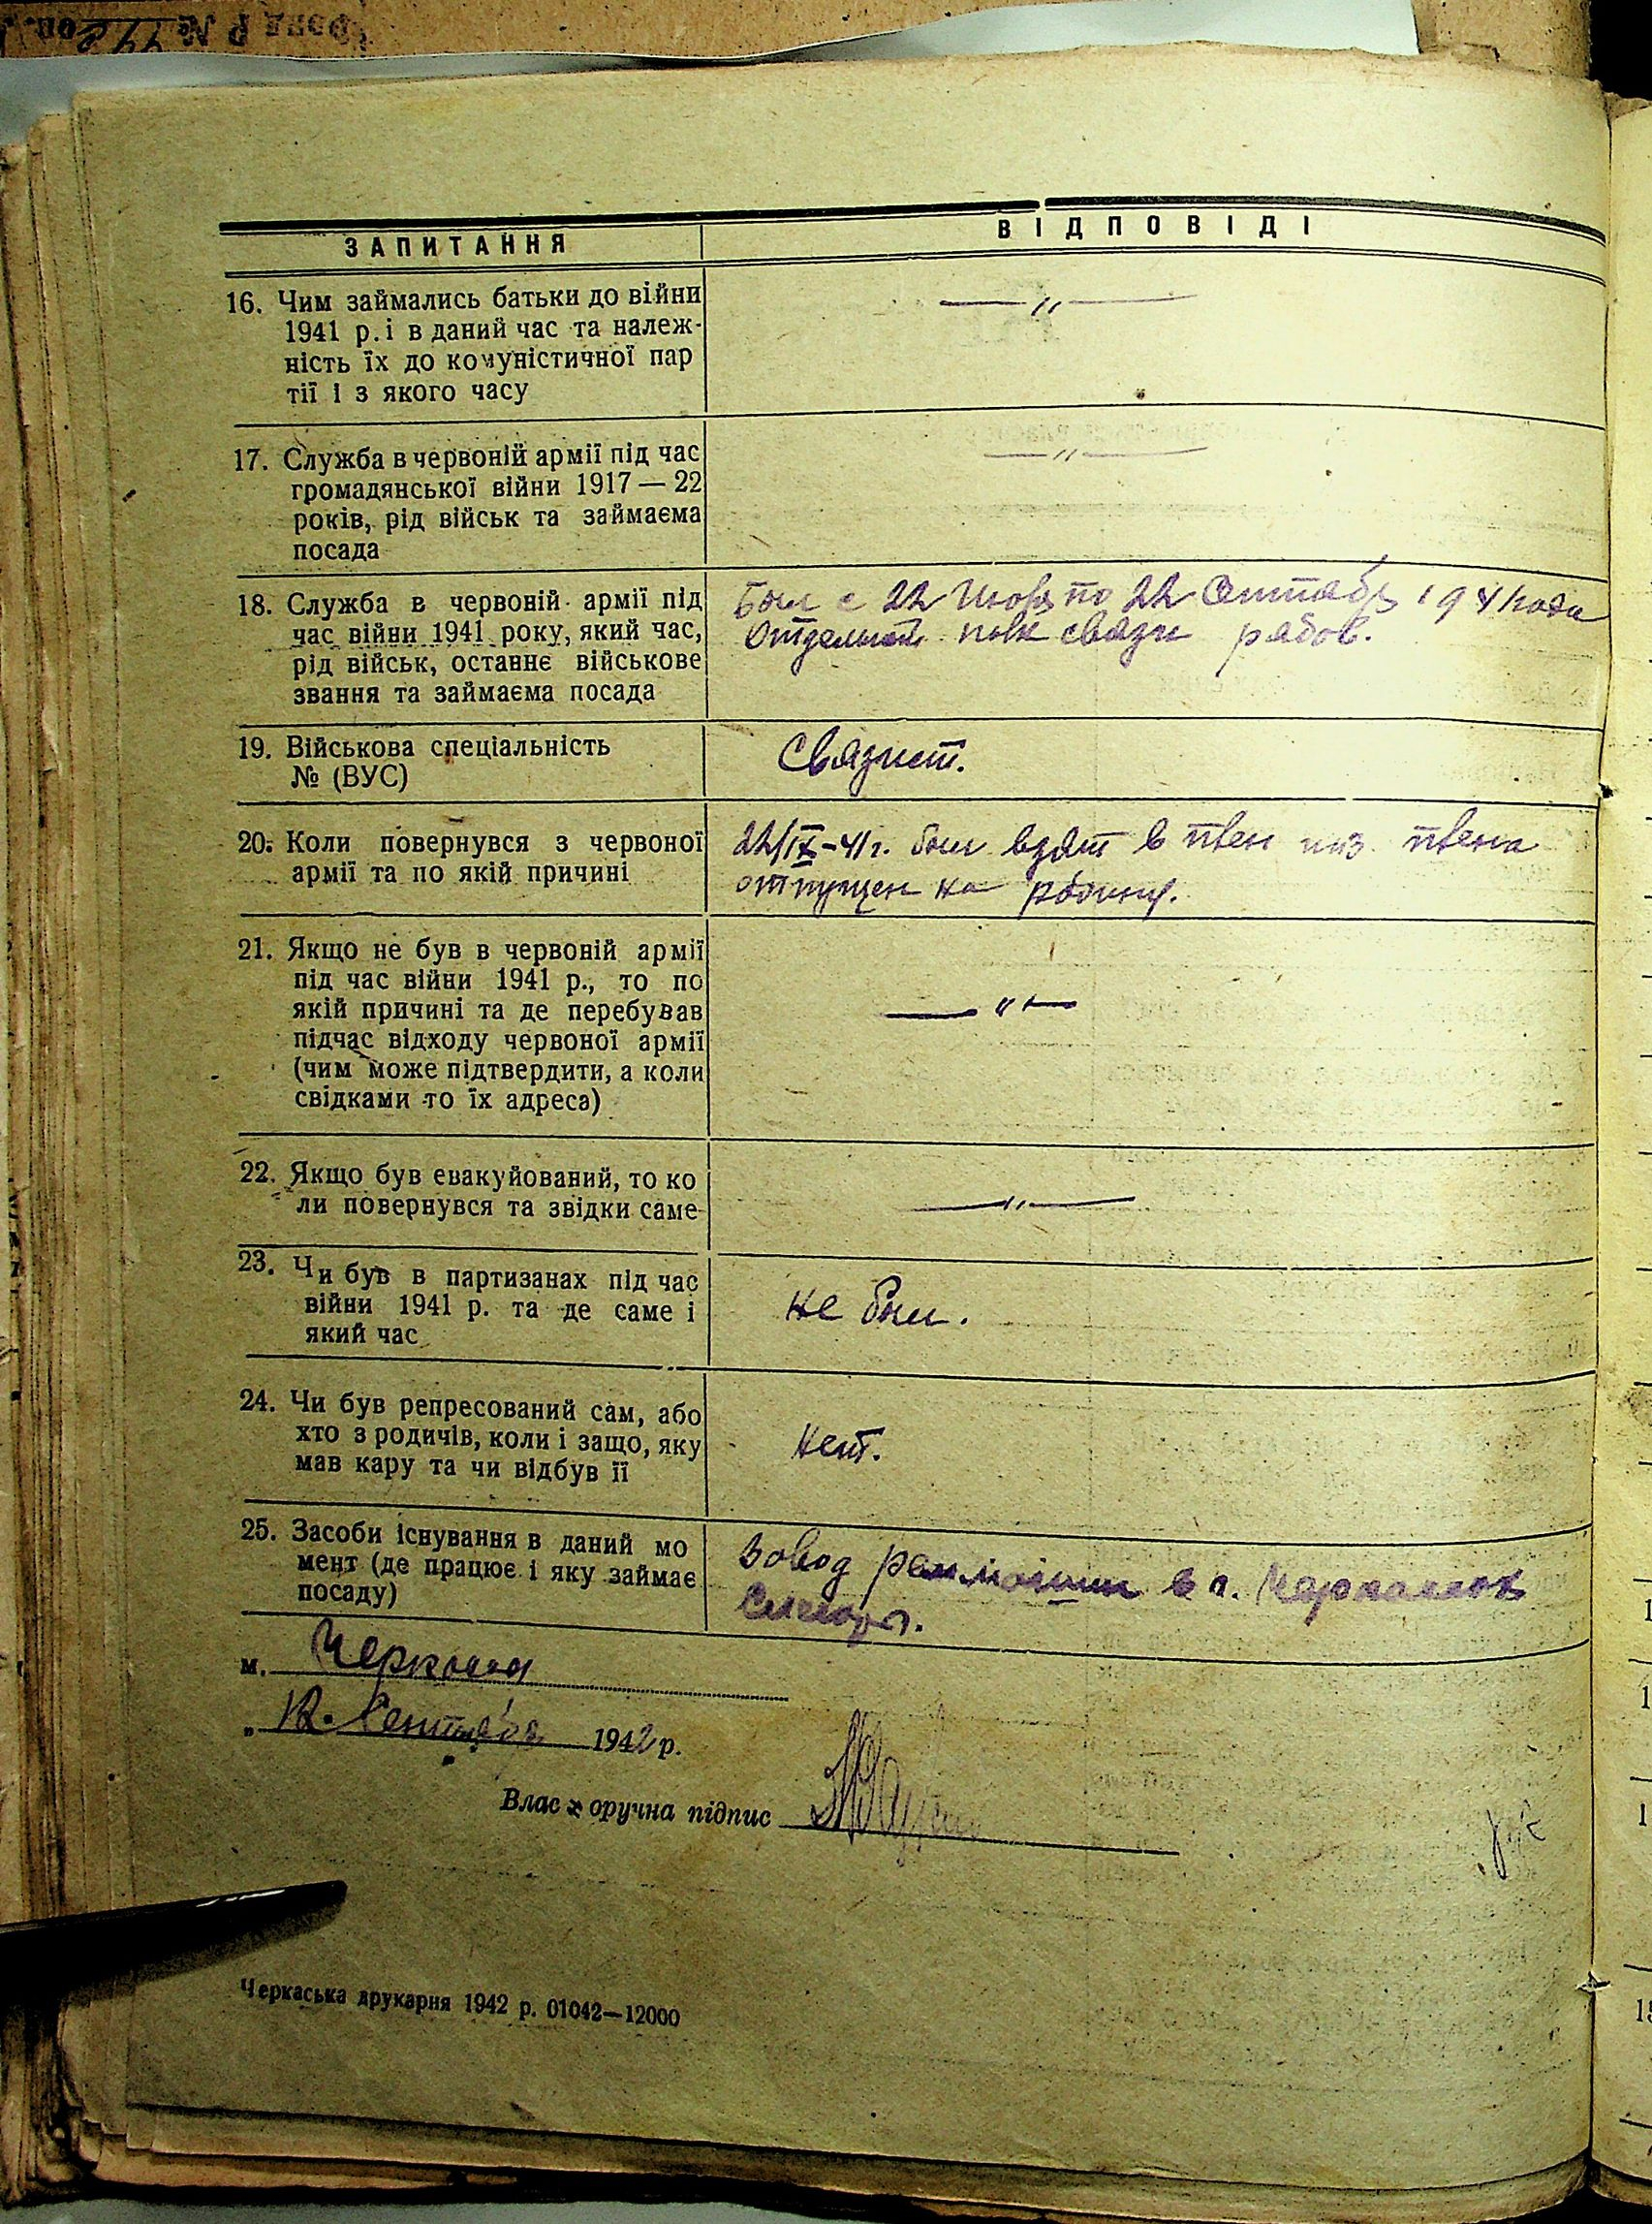 ЗАПИТАННЯ
ВІДПОВІДІ
16. Чим займались батьки до війни
1941 р. і в даний час та належ-
ність їх до комуністичної пар
тії і з якого часу
— " —
17. Служба в червоній армії під час
громадянської війни 1917 — 22
років, рід військ та займаєма
посада
— " —
18. Служба в червоній армії під
час війни 1941 року, який час,
рід військ, останнє військове
звання та займаєма посада
Был с 22 по 22 1941 года
полк связи рядов.
19. Військова спеціальність
№ (ВУС)
Связист.
20. Коли повернувся з червоної
армії та по якій причині
22/IX-41г. был взят в плен из плена
отпущен на родину.
21. Якщо не був в червоній армії
під час війни 1941 р., то по
якій причині та де перебував
підчас відходу червоної армії
(чим може підтвердити, а коли
свідками то їх адреса)
— " —
22. Якщо був евакуйований, то ко
ли повернувся та звідки саме
— " —
23. Чи був в партизанах під час
війни 1941 р. та де саме і
який час
не был.
24. Чи був репресований сам, або
хто з родичів, коли і защо, яку
мав кару та чи відбув її
Нет.
25. Засоби існування в даний мо
мент (де працює і яку займає
посаду)
в г.
м. Черкассы
„ 12. Сентября 1942 р.
Влас оручна підпис
Черкаська друкарня 1942 р. 01042—12000